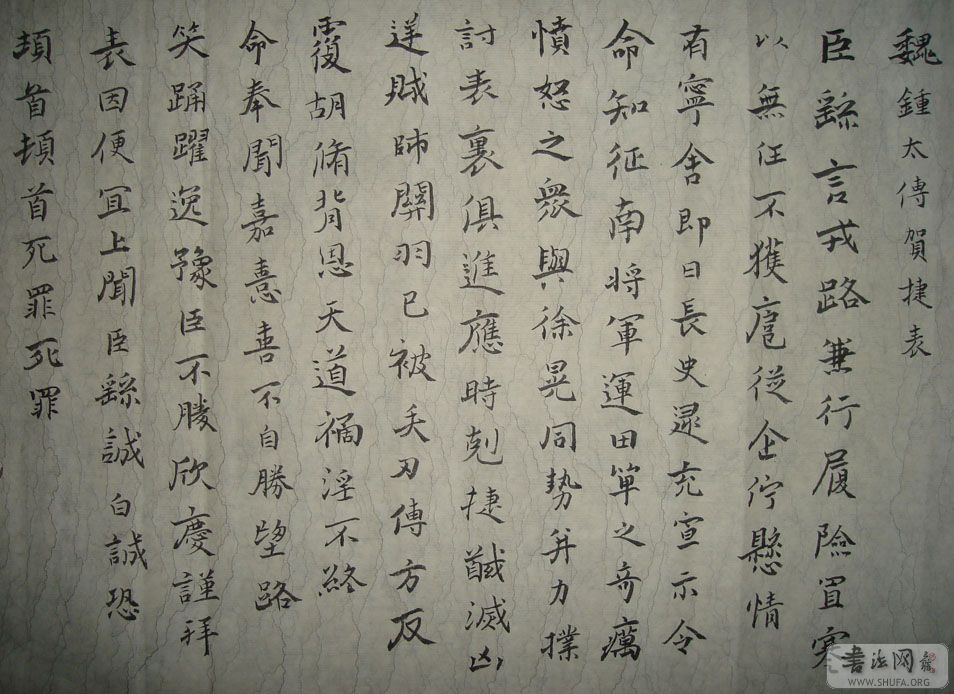 魏鍾太傅賀捷表
臣繇言戎路兼行履險冒寒
以無任不獲扈從企佇懸情
有寧舍即日長史逯充宣示令
命知征南将軍運田單之奇厲
憤怒之衆與徐晃同勢并力撲
討表裏俱進應時剋捷馘滅凶
逆賊帥關羽已被矢刃傅方反
覆胡脩背恩天道禍淫不終
命奉聞嘉憙喜不自勝望路
笑踊躍逸豫臣不勝欣慶謹拜
表因便宜上聞臣繇誠白誠恐
頓首頓首死罪死罪
書法网
WWW.SHUFA.ORG